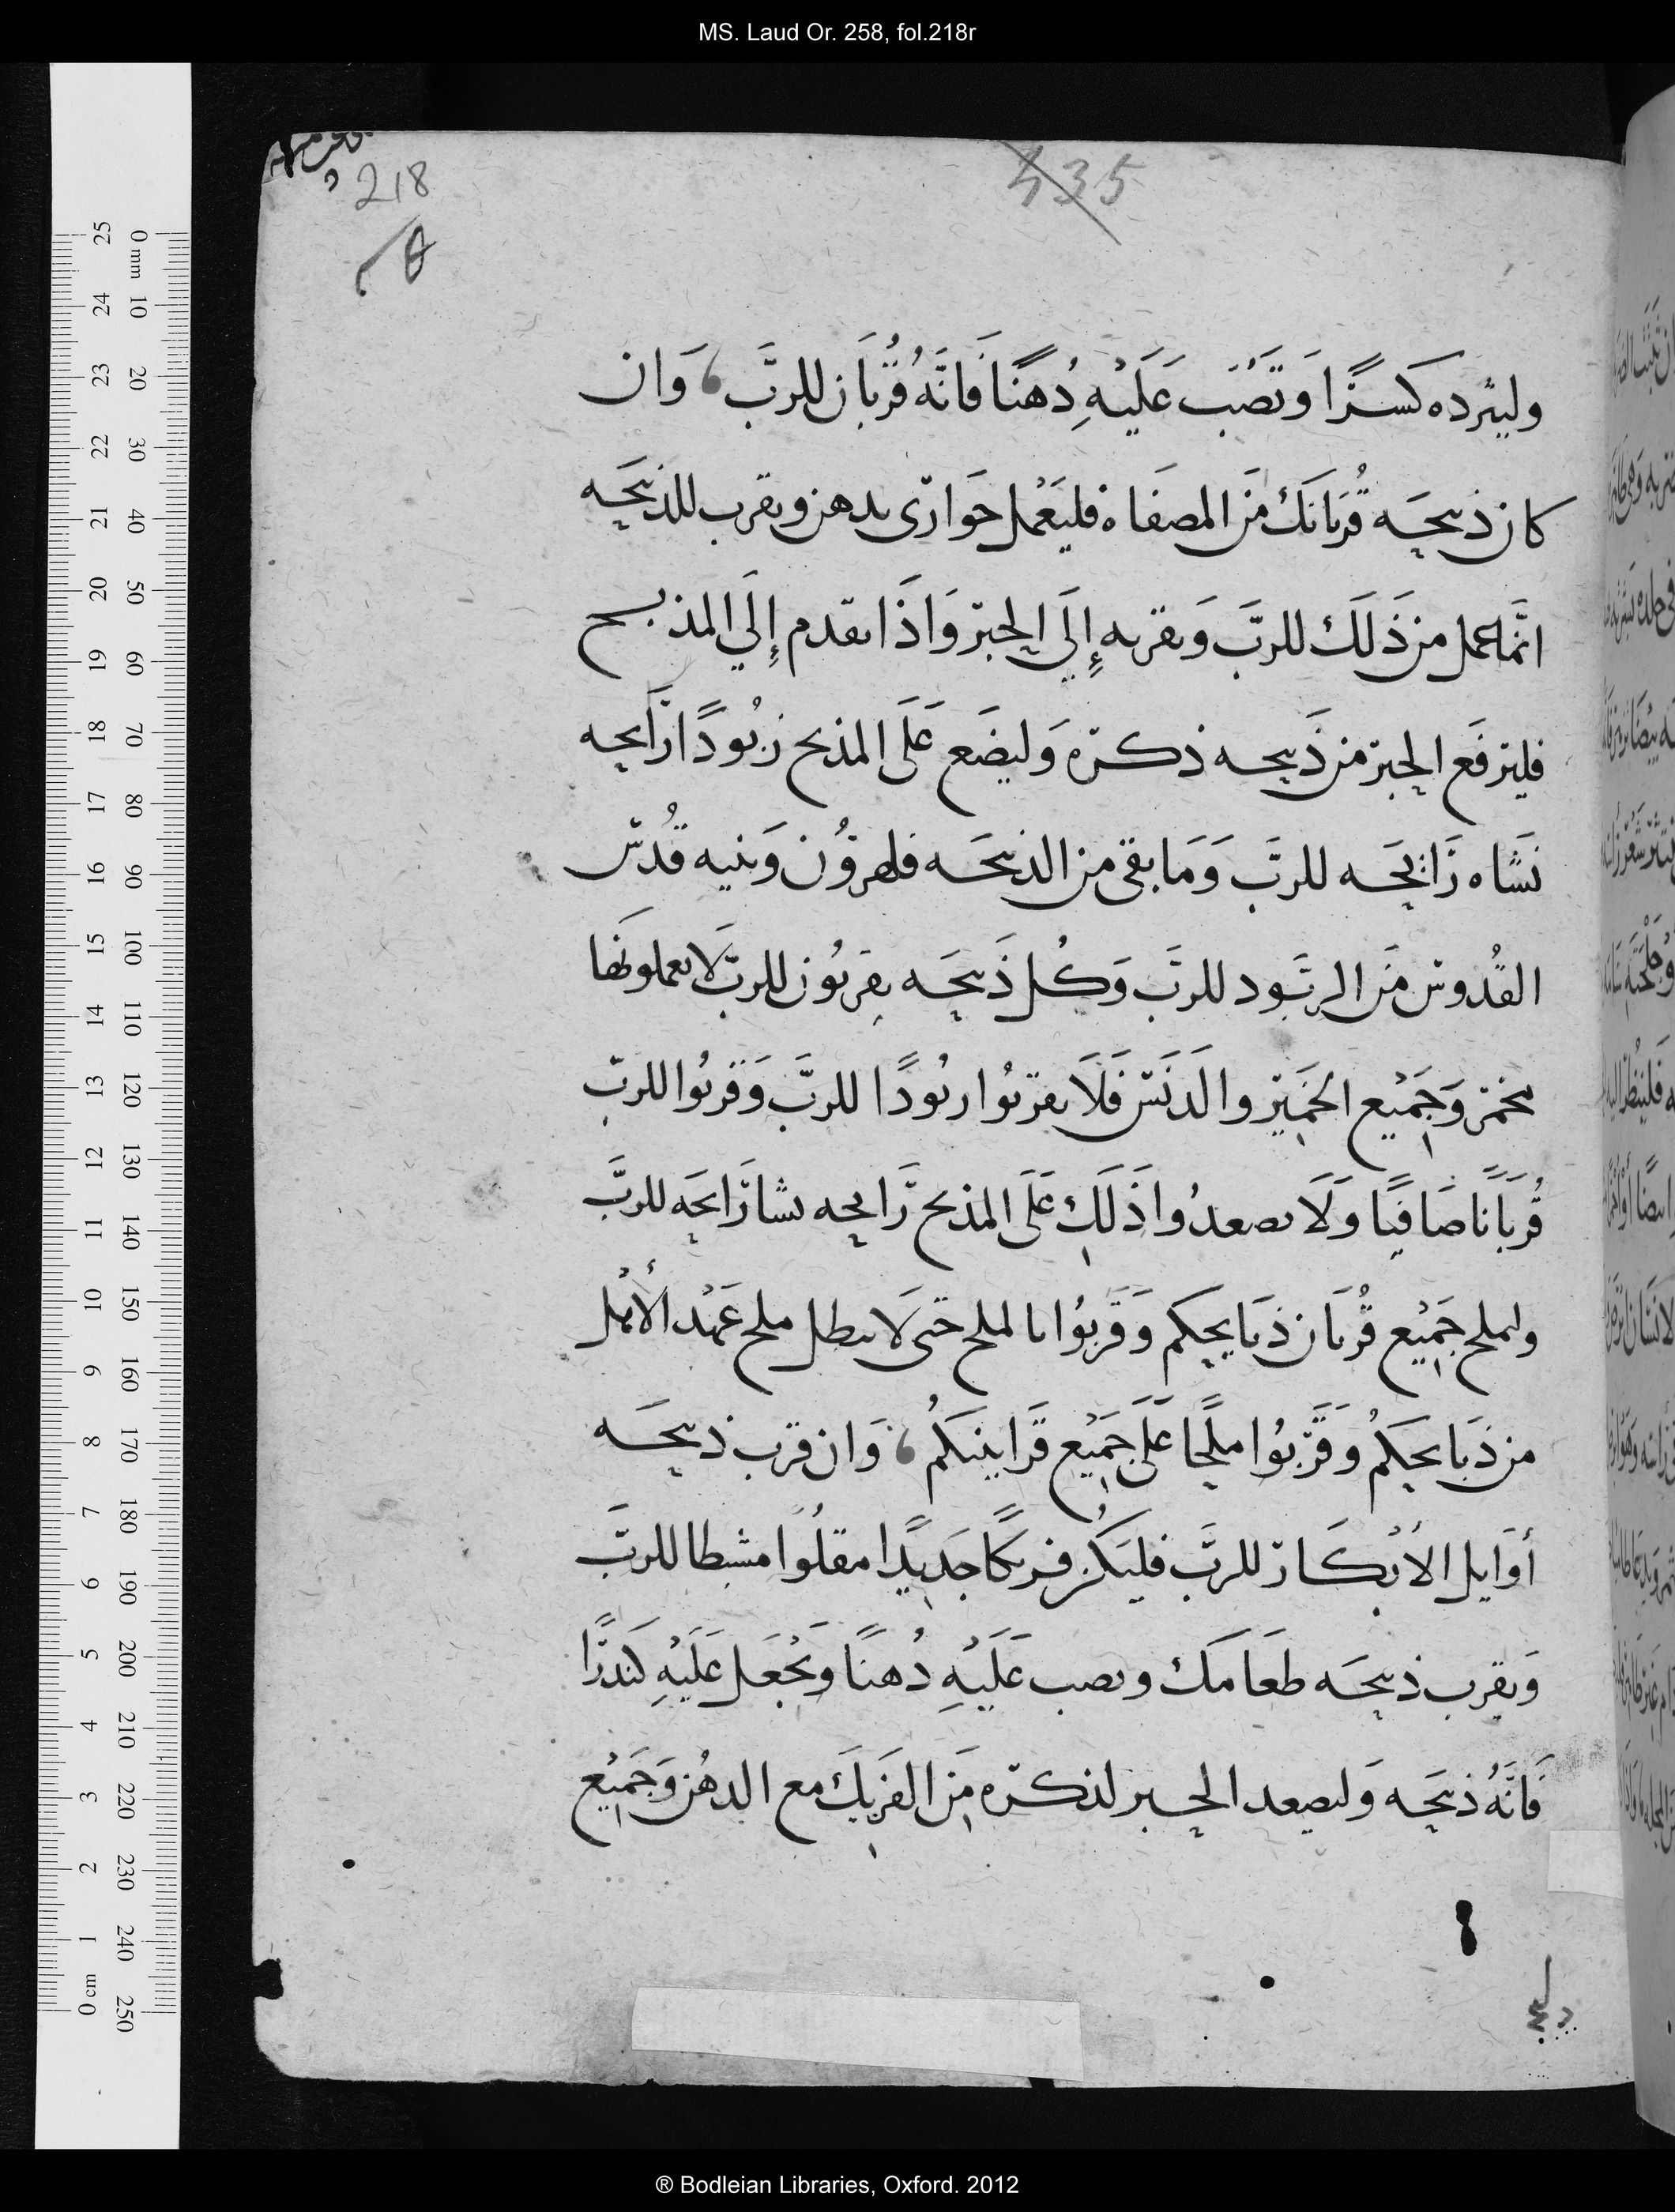 MS. Laud Or. 258, fol.218r
218
435
وليثرده كسرًا وَتصُب عَلَيْهِ دُهنًا فَانَّهُ قُرْبَان للربَّ، وَان
كان ذبيحَه قُربَانَك مَن المصفاه فليَعْمل حَوارَى بدهن ويقرب للذبيحَه
انمَّا عمل من ذَلَك للربَّ وَيقربه إِلَي الحِبرْ وَاذَا تقدم إِلَي المذبح
فليرْفَع الحِبرْ من ذَبيحه ذكرَه وَليضَع عَلَى المذبح زبُودًا رَايحه
نَشَاه رَايحَه للربَّ وَمَا بقى من الذبيحَه فلهرُون وَبنيه قُدسْ
القُدوسْ مَن الربَود للربَّ وَكُل ذَبيحَه يقربُون للربَّ لَا يعملونهَا
بخمرْ وَجَميْع الخَميرْ والدَنَسْ فَلَا يقربُوا ربُودًا للربَّ وَقربُوا للربَّ
قُربَانًا صَافيًا وَلَا يصعدُوا ذَلَك عَلَى المذبح رَايحه نشا رَايحَه للربَّ
وليملح جَميْع قُربَان ذبَايحِكم وَقَربُوا بالملح حتى لَا يبطل ملح عَهْد الأمْل
من ذبَايحكمُ وَقَربُوا ملحًا عَلَى جَميْع قَرابينكمُ، وَان قرب ذبيحَه
أوَايل الأبْكَارْ للربَّ فليَكُن فريكًا جَديدًا مقلُوا مشيطا للربَّ
وَيقرب ذبيحَه طعَامَك ويصب عَلَيْهِ دُهنًا وَيجْعَل عَلَيْهِ كندرًا
فَانَّهُ ذبيحَه وَليصعد الحِبر لذكرَه مَن الفريَك مع الدهُن وَجَميْع
® Bodleian Libraries, Oxford. 2012